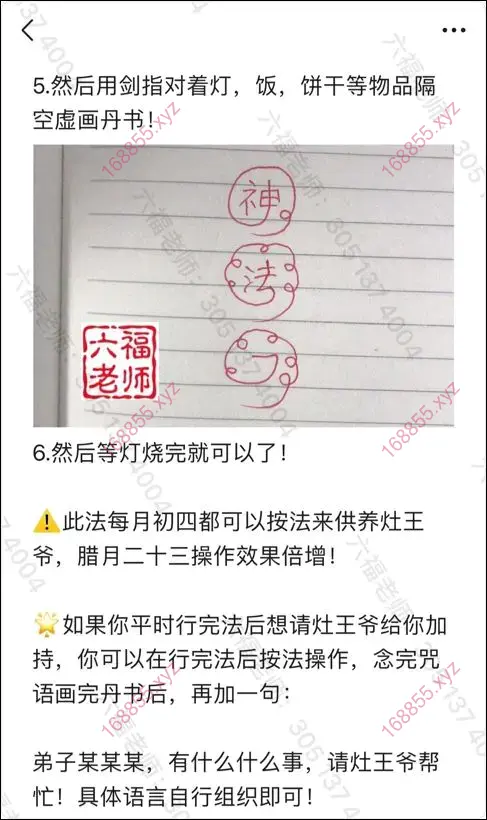 5.然后用剑指对着灯，饭，饼干等物品隔
空虚画丹书！
神
法
六福
老师
6.然后等灯烧完就可以了！
⚠️此法每月初四都可以按法来供养灶王
爷，腊月二十三操作效果倍增！
🌟如果你平时行完法后想请灶王爷给你加
持，你可以在行完法后按法操作，念完咒
语画完丹书后，再加一句：
弟子某某某，有什么什么事，请灶王爷帮
忙！具体语言自行组织即可！
168855.xyz
168855.xyz
168855.xyz
168855.xyz
六福老师：3051374004
六福老师：3051374004
六福老师：3051374004